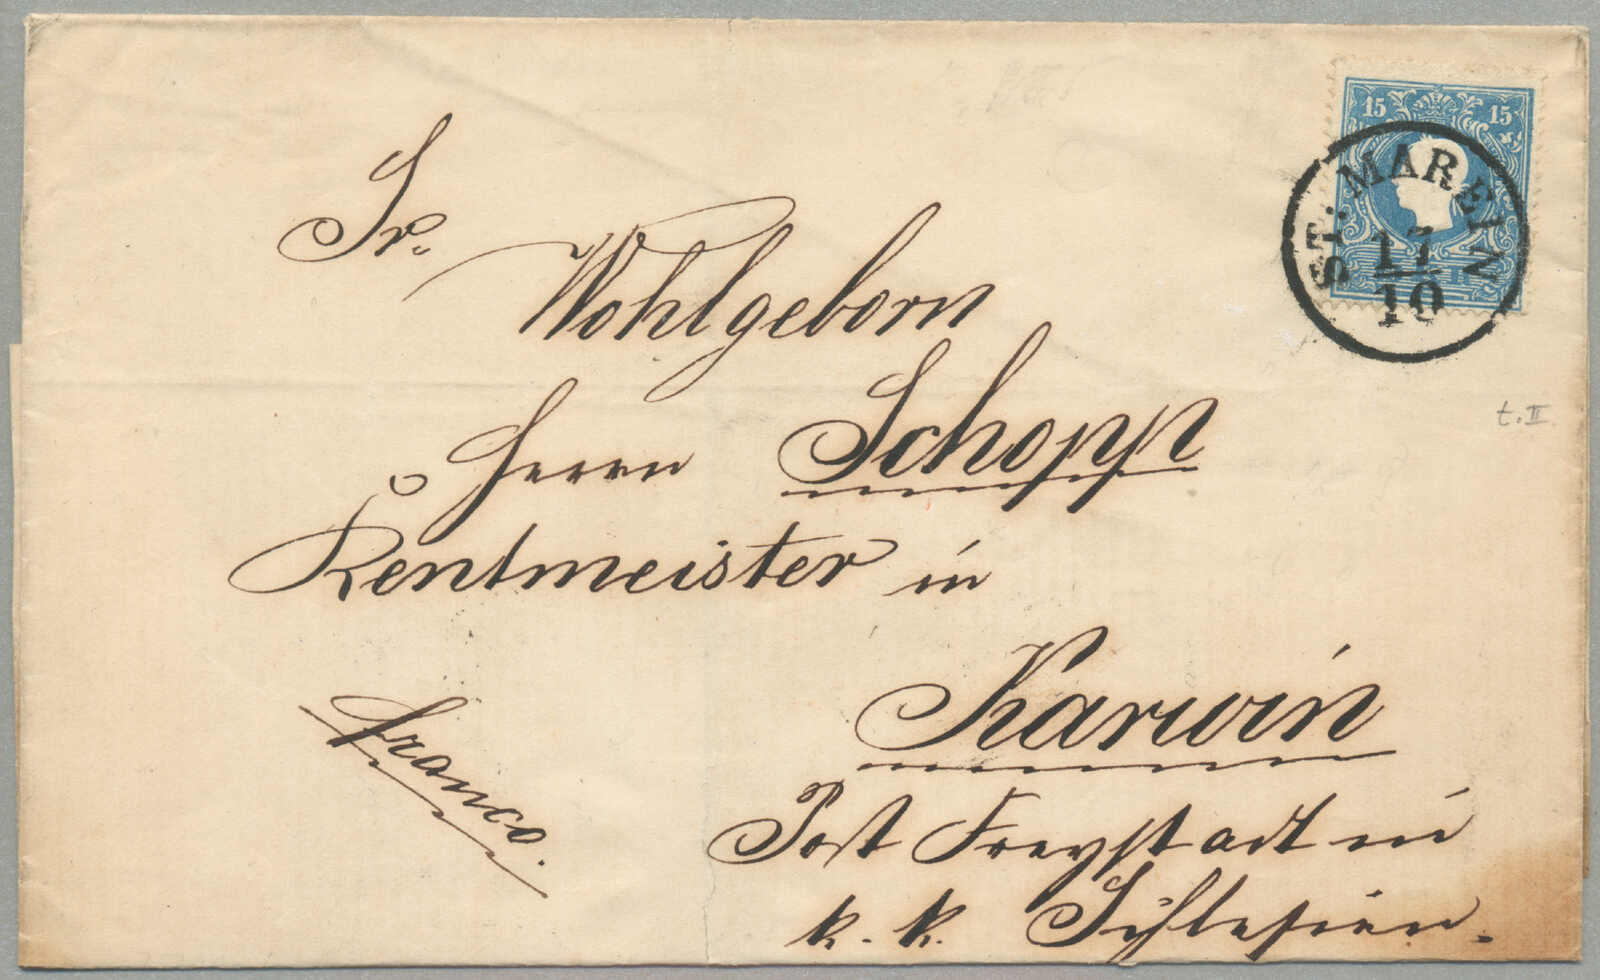 15 15
ST. MAREIN
17
10
t. II
Sr.
Wohlgeborn
Herrn Schopp
Rentmeister in
Karwin
franco.
Post Freystadt in
k. k. Schlesien.